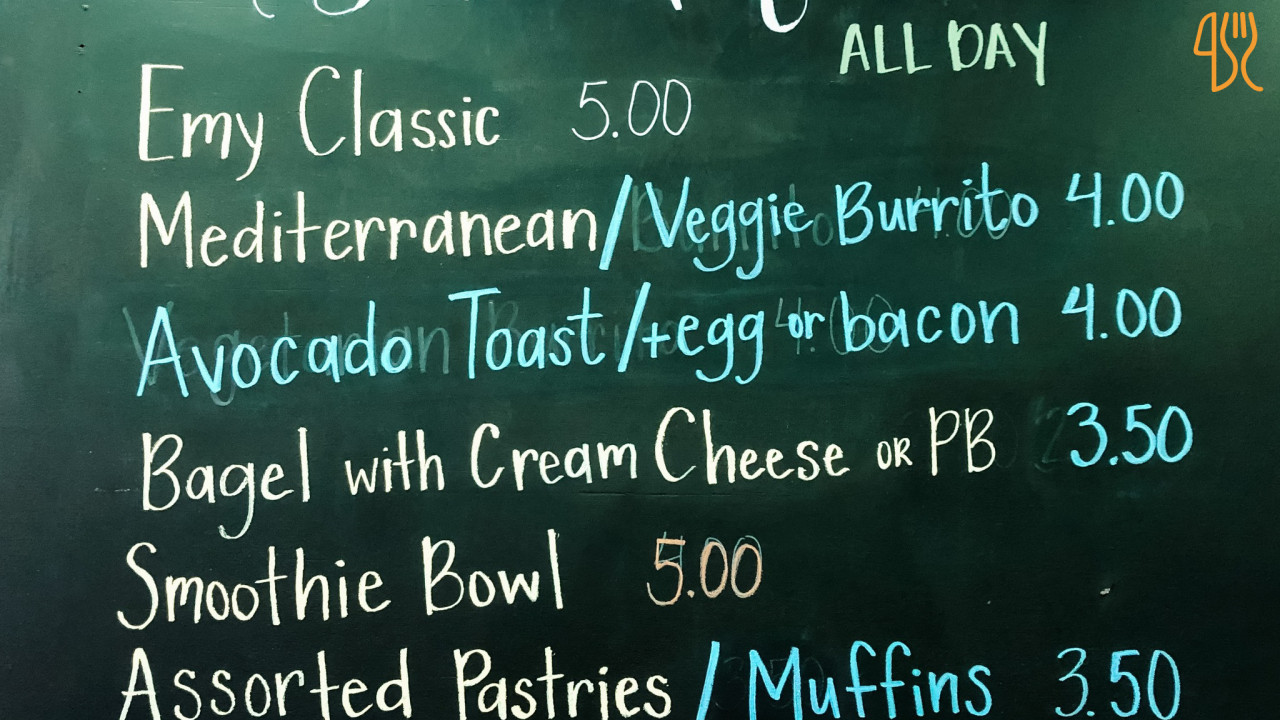 ALL DAY
Emy Classic 5.00
Mediterranean/Veggie Burrito 4.00
Avocado Toast/+egg or bacon 4.00
Bagel with Cream Cheese OR PB 3.50
Smoothie Bowl 5.00
Assorted Pastries / Muffins 3.50